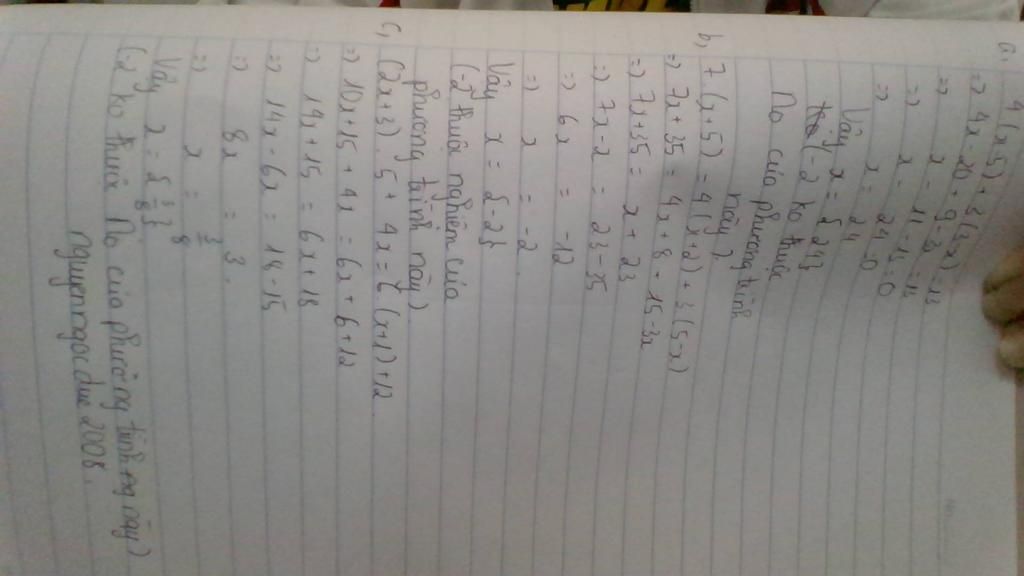 a,
4(x-5)+3(3-x)-13
=> 4x-20+9-3x-13
=> x-11-13=0
=> x-24=0
x=24
Vậy x={24}
(-2 ko thuộc
No của phương trình
này)
b, 7(x+5)=4(x+2)+3(5-x)
=> 7x+35=4x+8+15-3x
=> 7x+35=x+23
=> 7x-x=23-35
=> 6x=-12
=> x=-2
Vậy x={-2}
(-2 thuộc nghiệm của
phương trình này)
c, (2x+3).5+4x=6(x+1)+12
=> 10x+15+4x=6x+6+12
=> 14x+15=6x+18
=> 14x-6x=18-15
=> 8x=3.
=> x=3/8
Vậy x={3/8}
(-2 ko thuộc No của phương trình này)
nguyenngocduc2008.